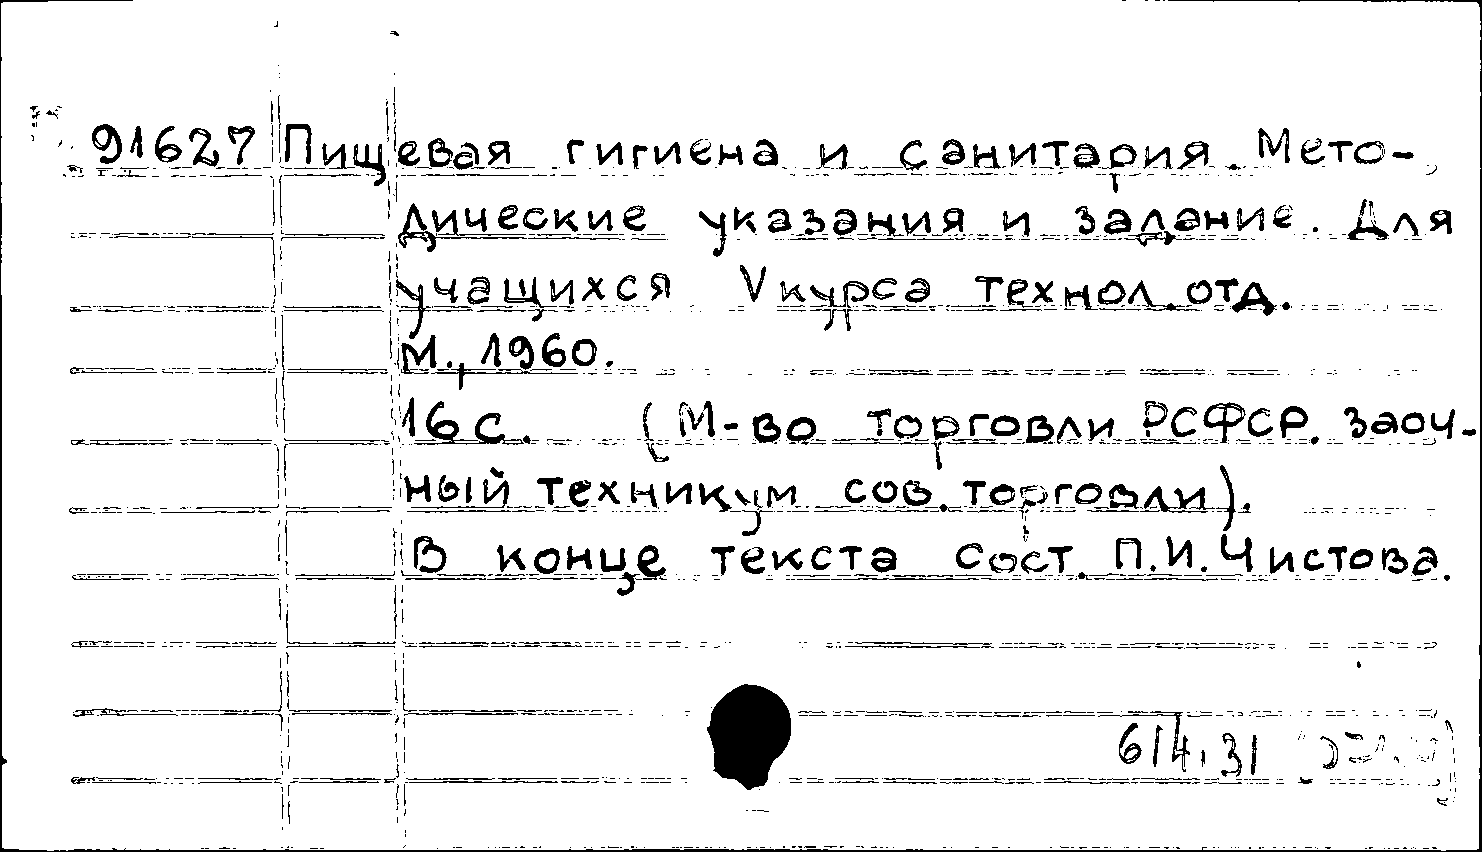 91627 Пищевая гигиена и санитария. Мето-
дические указания и задание. Для
учащихся V курса технол. отд.
М., 1960.
16 с. (М-во торговли РСФСР. Заоч-
ный техникум сов. торговли).
В конце текста сост. П.И. Чистова.
614.31